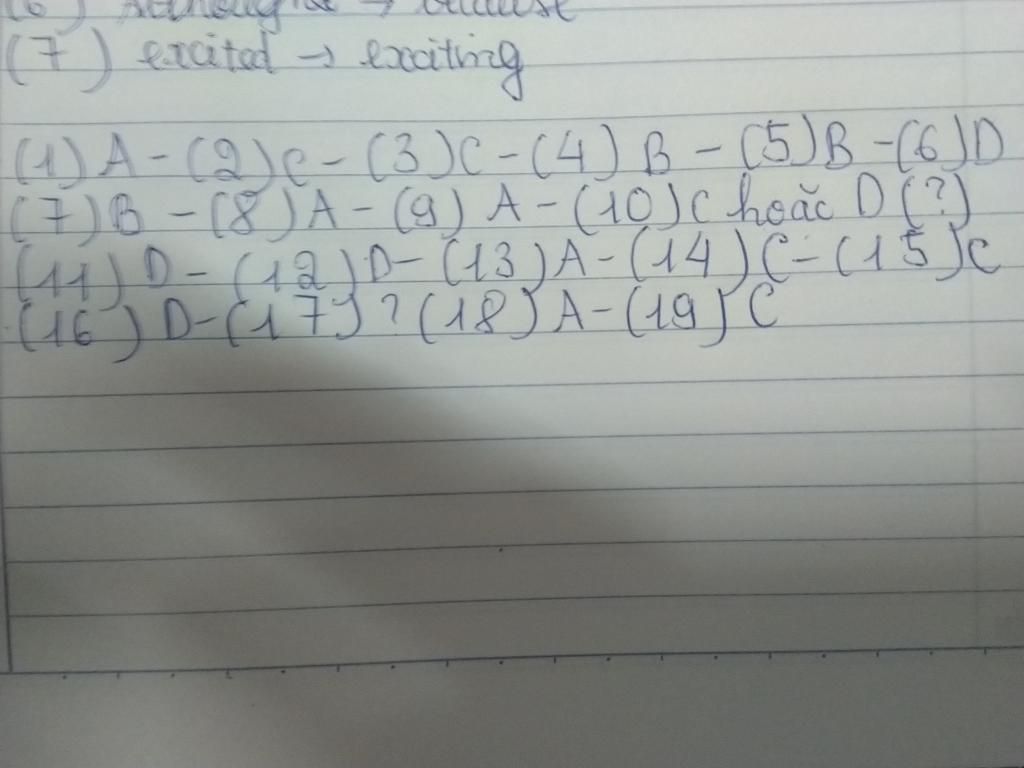 (7) excited → exciting
(1) A - (2) C - (3) C - (4) B - (5) B - (6) D
(7) B - (8) A - (9) A - (10) C hoặc D (?)
(11) D - (12) D - (13) A - (14) C - (15) C
(16) D - (17) ? (18) A - (19) C